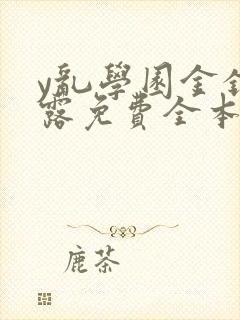 y亂學園金銀
露免費全本
鹿茶